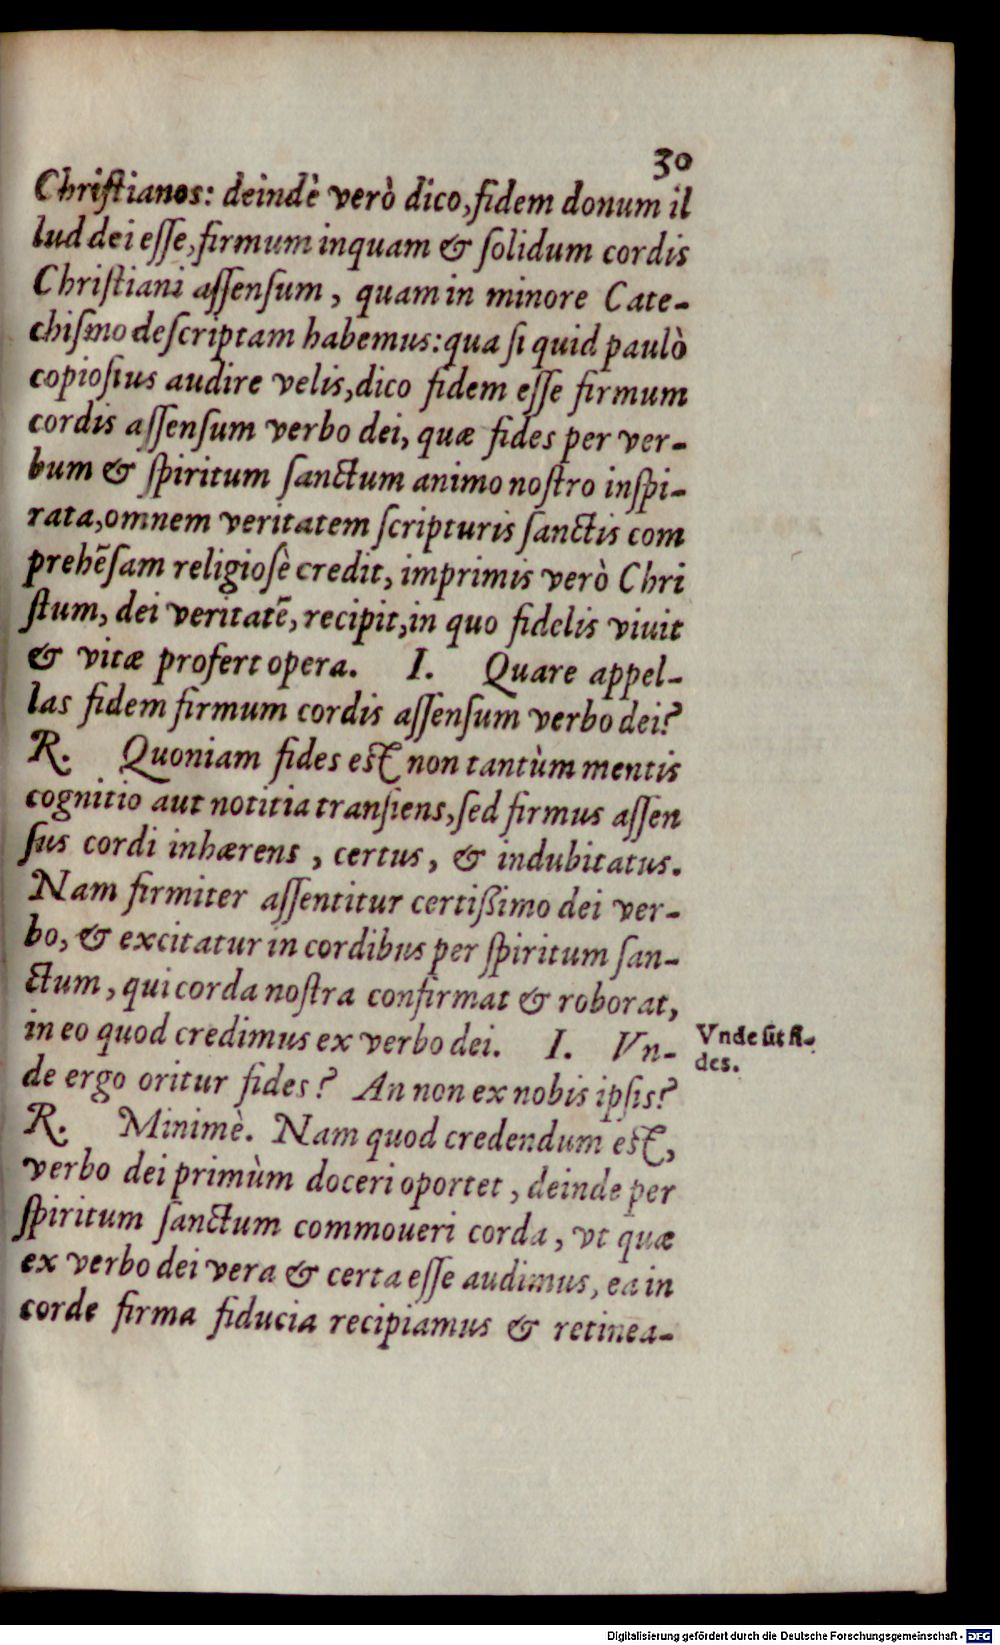 30
Chriſtianos: deindè verò dico, fidem donum il
lud dei eſſe, firmum inquam & ſolidum cordis
Chriſtiani aſſenſum, quam in minore Cate-
chiſmo deſcriptam habemus: qua ſi quid paulò
copioſius audire velis, dico fidem eſſe firmum
cordis aſſenſum verbo dei, quæ fides per ver-
bum & ſpiritum ſanctum animo noſtro inſpi-
rata, omnem veritatem ſcripturis ſanctis com
prehēſam religioſè credit, imprimis verò Chri
ſtum, dei veritatē, recipit, in quo fidelis viuit
& vitæ profert opera. I. Quare appel-
las fidem firmum cordis aſſenſum verbo dei?
R. Quoniam fides est non tantùm mentis
cognitio aut notitia tranſiens, ſed firmus aſſen
ſus cordi inhærens, certus, & indubitatus.
Nam firmiter aſſentitur certißimo dei ver-
bo, & excitatur in cordibus per ſpiritum ſan-
ctum, qui corda noſtra confirmat & roborat,
in eo quod credimus ex verbo dei. I. Vn-
Vnde ſit fi-
des.
de ergo oritur fides? An non ex nobis ipſis?
R. Minimè. Nam quod credendum est,
verbo dei primùm doceri oportet, deinde per
ſpiritum ſanctum commoueri corda, vt quæ
ex verbo dei vera & certa eſſe audimus, ea in
corde firma fiducia recipiamus & retinea-
Digitalisierung gefördert durch die Deutsche Forschungsgemeinschaft - DFG